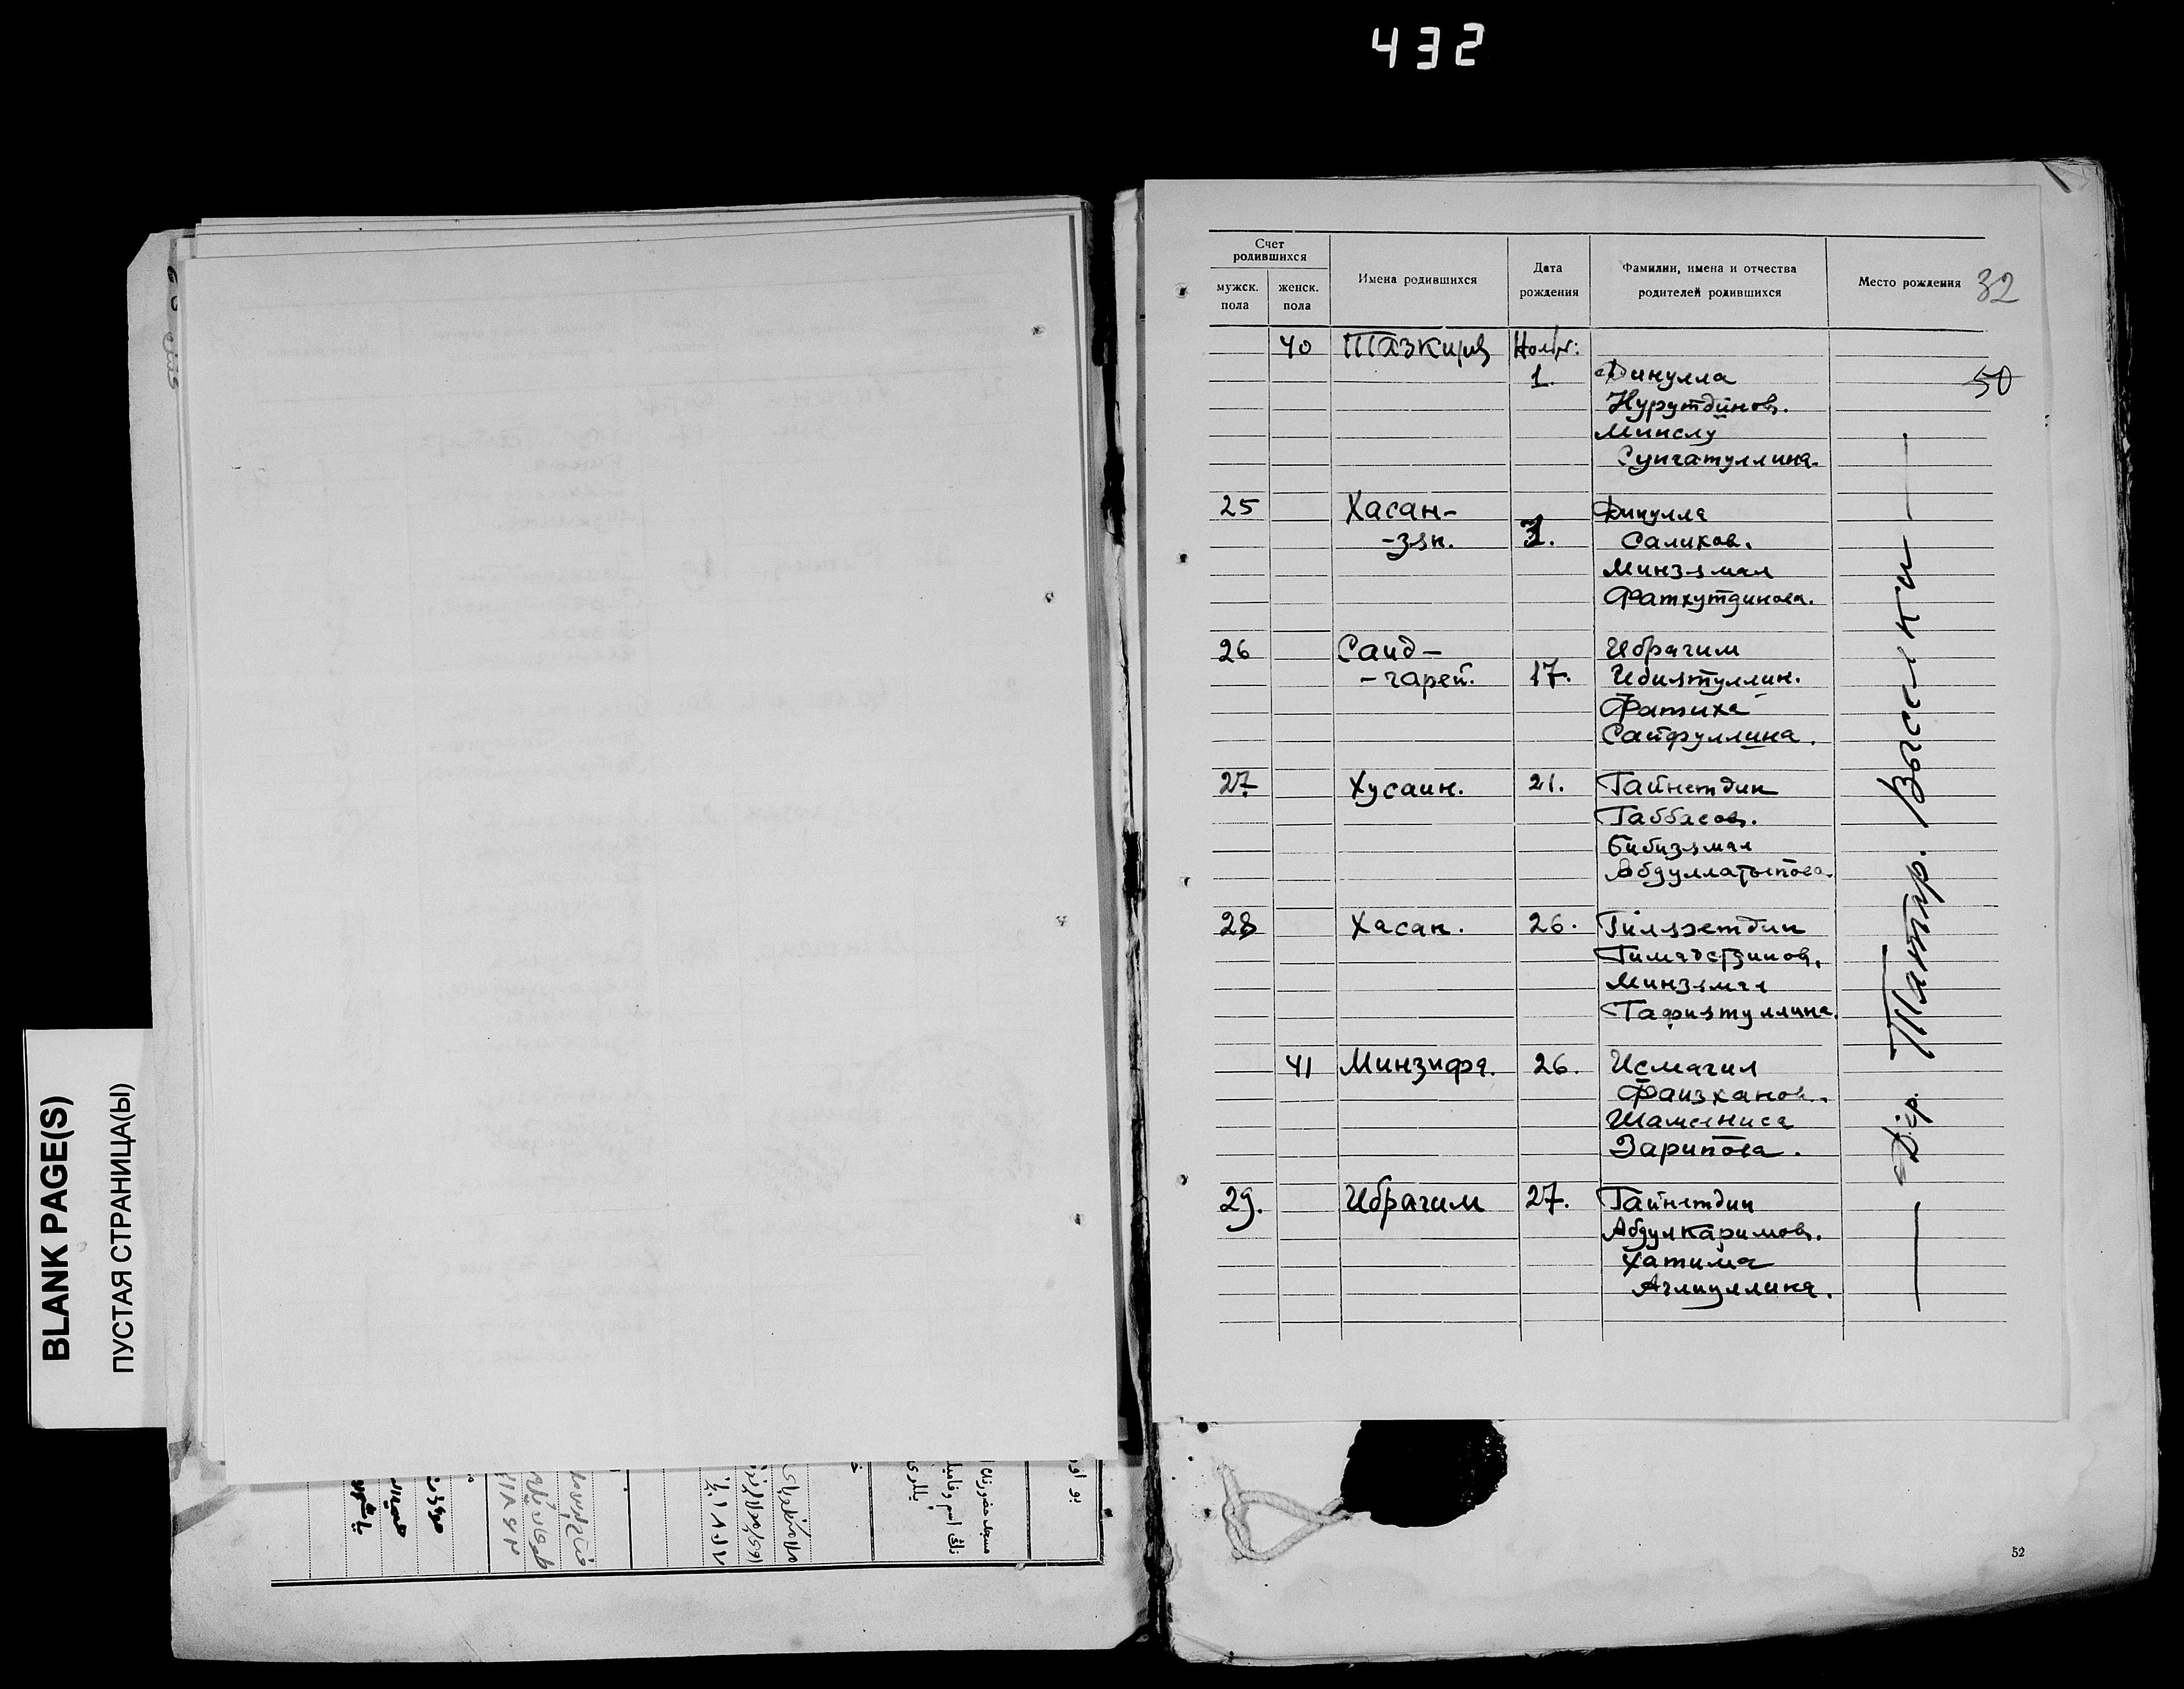 432
BLANK PAGE(S)
ПУСТАЯ СТРАНИЦА(Ы)
Счет родившихся
мужск. пола
женск. пола
Имена родившихся
Дата рождения
Фамилии, имена и отчества родителей родившихся
Место рождения
32
50
40 Тазкира Ноябр: 1. Динулла
Нурутдинов.
Минслу
Сунгатуллина.
25 Хасан- Динулла
-зян. 3. Саликов.
Минзямал
Фатхутдинова.
26 Саид- Ибрагим
-гарей. 17. Ибиятуллин.
Фатиха
Сайфуллина.
27 Хусаин. 21. Гайнетдин
Габбасов.
Бибизямал
Абдуллатыпова.
28 Хасан. 26. Гилязетдин
Гимадетдинов.
Минзямал
Гафиятуллина.
41 Минзифа. 26. Исмагил
Фаизханов.
Шамсениса
Зарипова.
29. Ибрагим 27. Гайнетдин
Абдулкаримов.
Хатима
Аглиуллина.
— Дер. Татар. Выселки —
52